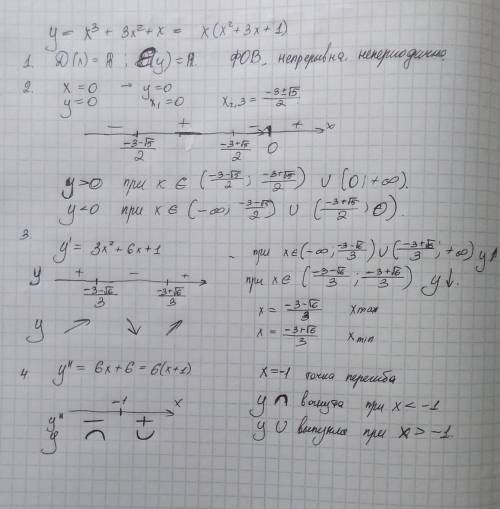 y = x³ + 3x² + x = x(x² + 3x + 1)
1. D(x) = R ; E(y) = R. ФОВ, непрерывна, непериодична.
2. x = 0 → y = 0
y = 0 x₁ = 0 x₂,₃ = (-3±√5)/2
− + − + x
(-3-√5)/2 (-3+√5)/2 0
y>0 при x ∈ ((-3-√5)/2 ; (-3+√5)/2) ∪ (0; +∞).
y<0 при x ∈ (-∞; (-3-√5)/2) ∪ ((-3+√5)/2 ; 0).
3. y' = 3x² + 6x + 1
y' + − +
(-3-√6)/3 (-3+√6)/3
y ↗ ↘ ↗
при x ∈ (-∞; (-3-√6)/3) ∪ ((-3+√6)/3 ; +∞) y↑
при x ∈ ((-3-√6)/3 ; (-3+√6)/3) y↓.
x = (-3-√6)/3 xmax
x = (-3+√6)/3 xmin
4. y'' = 6x + 6 = 6(x+1)
-1 x
y'' − +
y ∩ ∪
x = -1 точка перегиба
y ∩ вогнута при x < -1
y ∪ выпукла при x > -1.